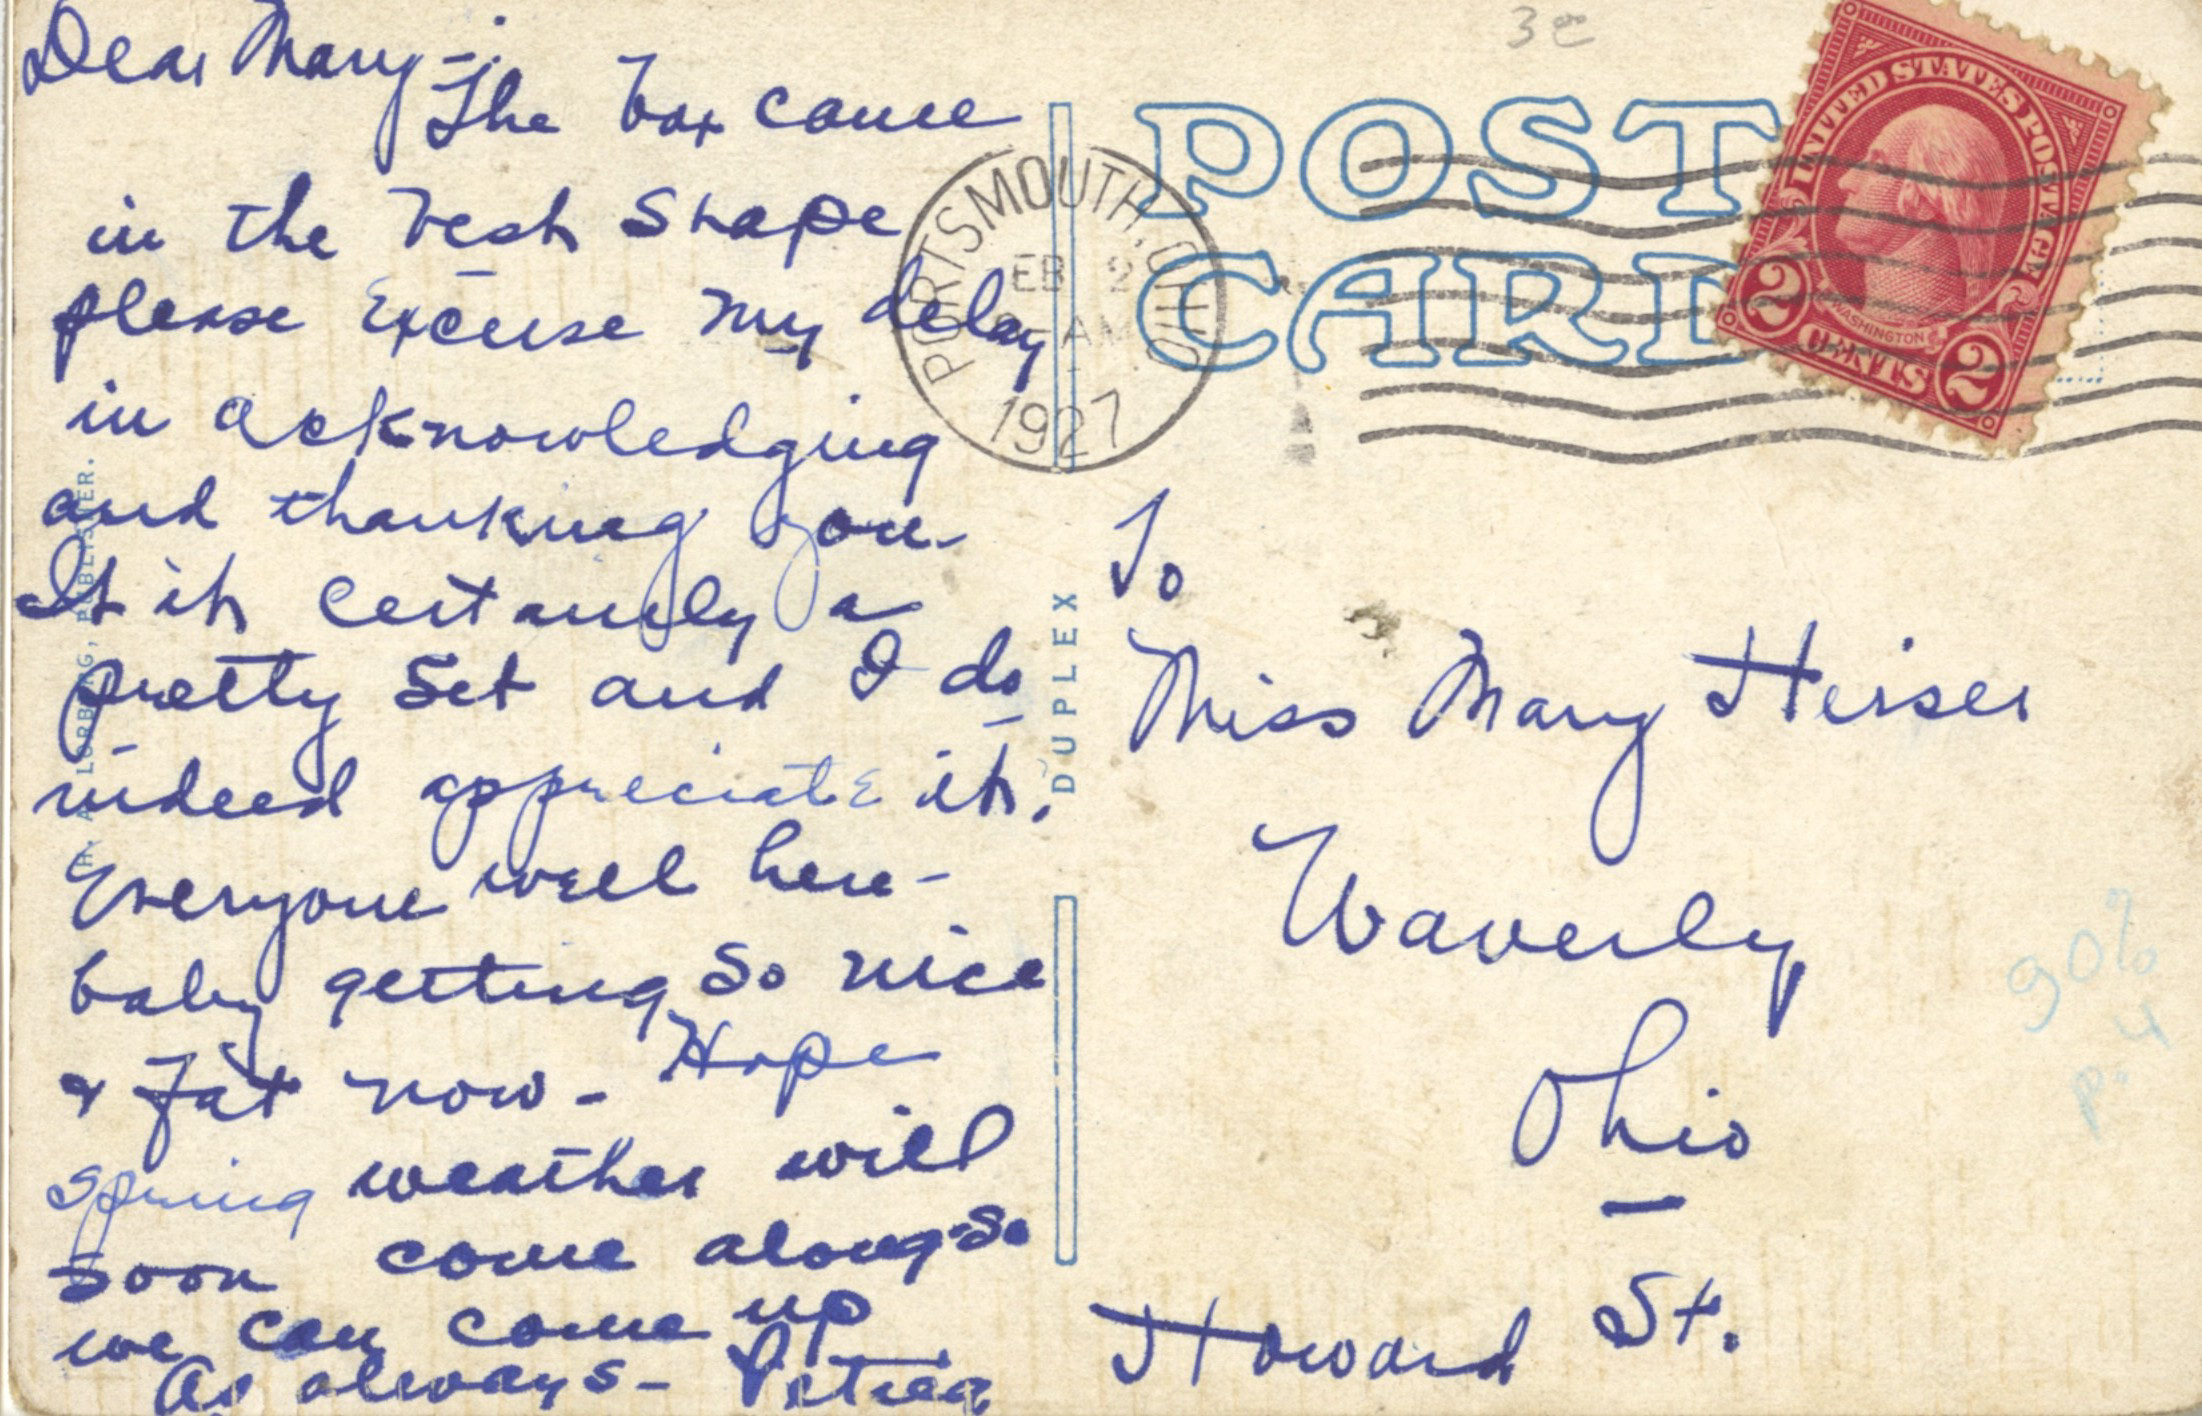 Dear Mary -
The box came
in the best shape
please excuse my delay
in acknowledging
and thanking you -
It is certainly a
pretty set and I do
indeed appreciate it.
Everyone well here -
baby getting so nice
& fat now - Hope
spring weather will
soon come along so
we can come up
As always -
3c
POST
CARD
UNITED STATES POSTAGE
WASHINGTON
2 CENTS 2
PORTSMOUTH, OHIO
FEB 2
AM
1927
DUPLEX
PUBLISHER.
To
Miss Mary Heiser
Waverly
Ohio
Howard St.
90%